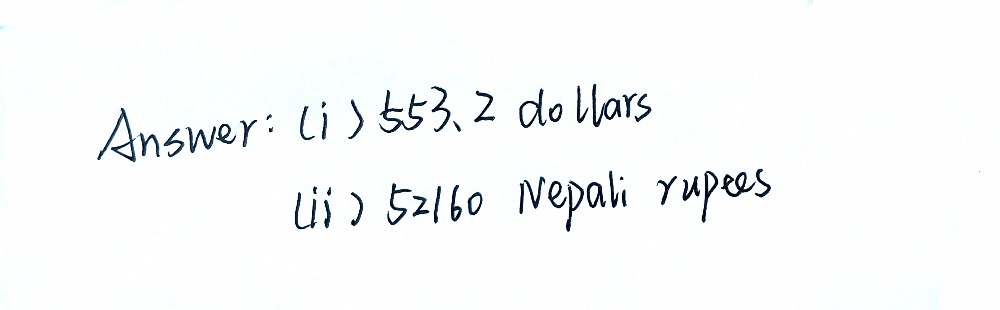 Answer: (i) 553.2 dollars
(ii) 52160 Nepali rupees